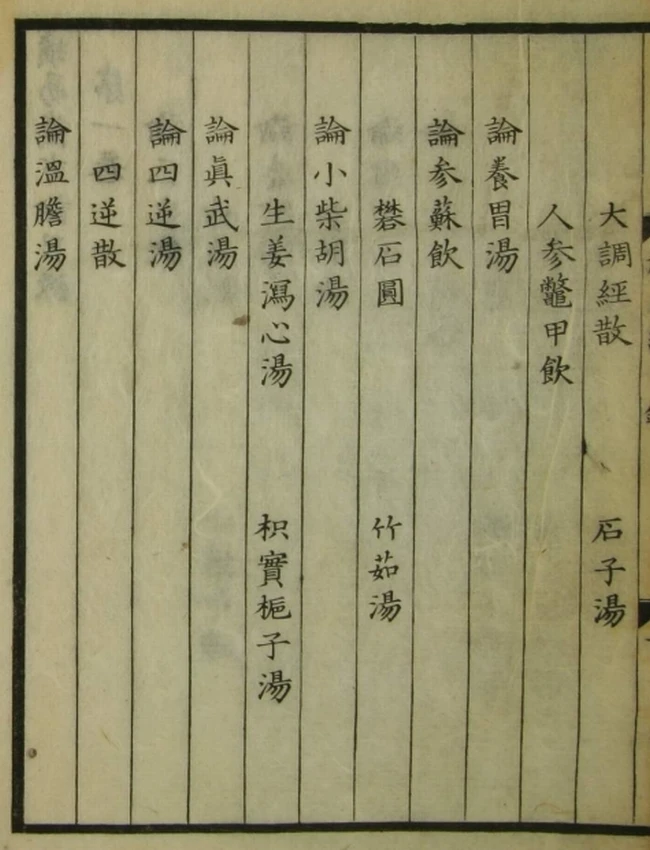 大調經散　石子湯
人参鼈甲飲
論養胃湯
論参蘇飲
礬石圓　竹茹湯
論小柴胡湯
生姜瀉心湯　枳實梔子湯
論眞武湯
論四逆湯
四逆散
論溫膽湯